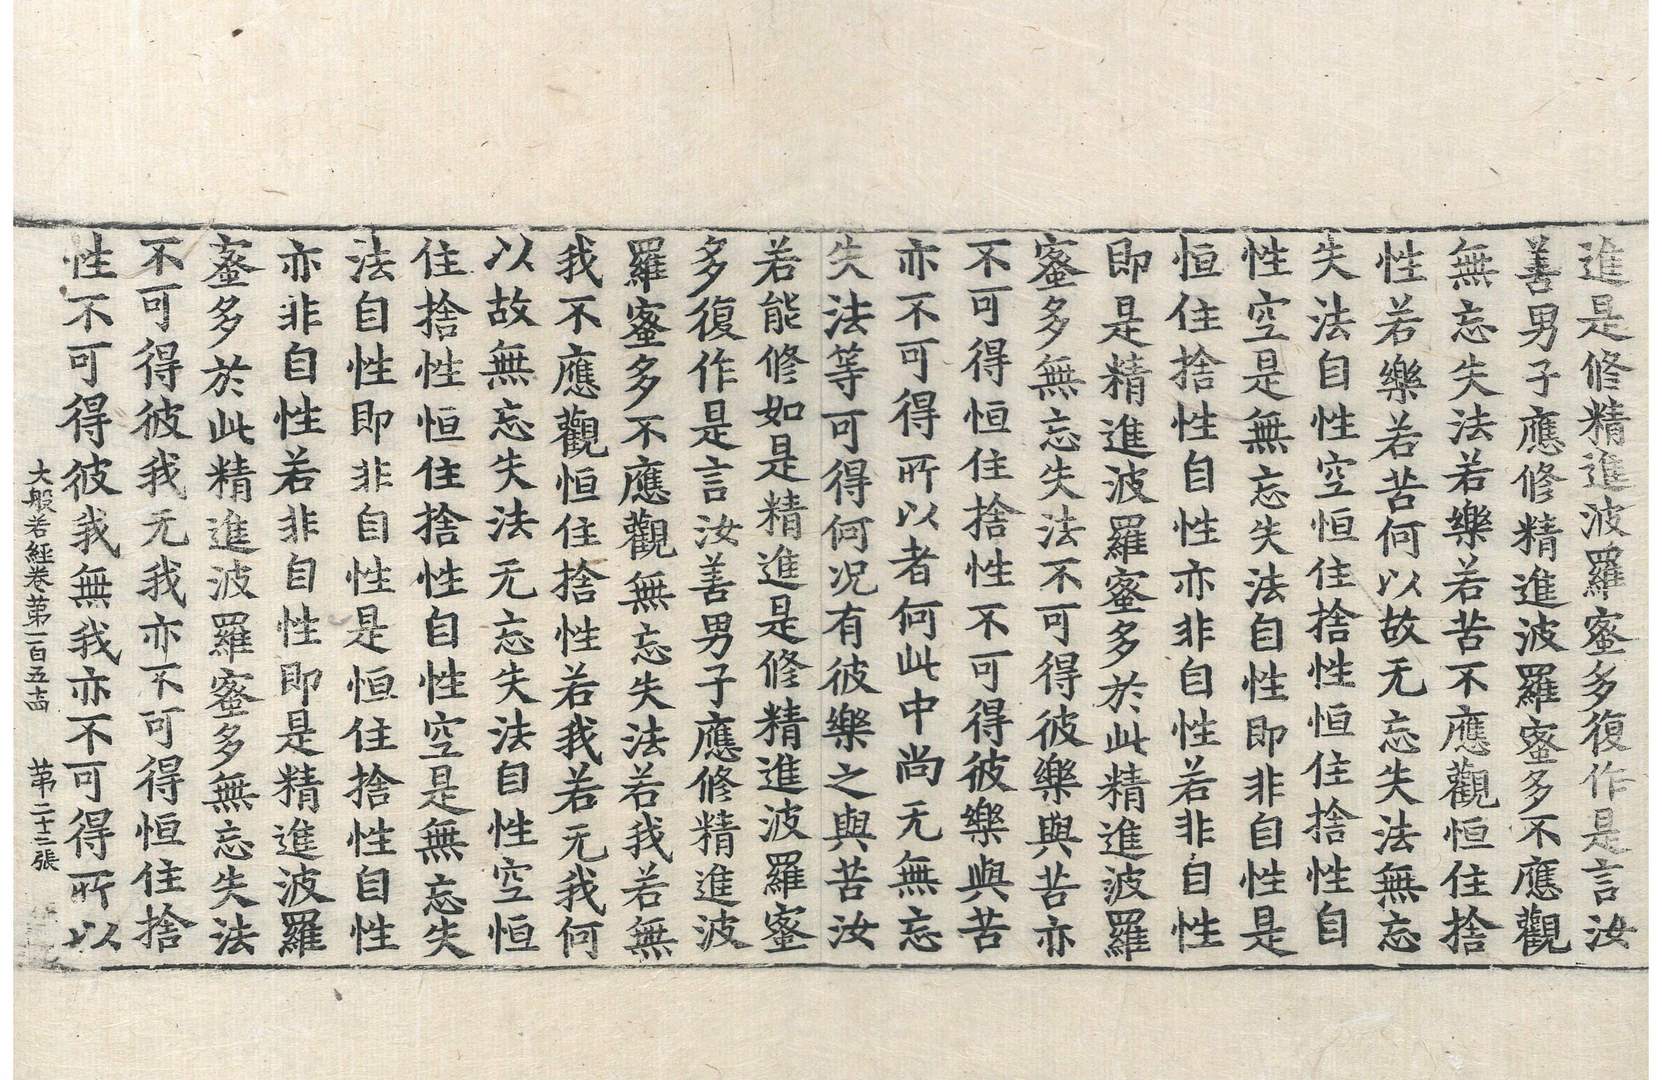 進是修精進波羅蜜多復作是言汝
善男子應修精進波羅蜜多不應觀
無忘失法若樂若苦不應觀恒住捨
性若樂若苦何以故无忘失法無忘
失法自性空恒住捨性恒住捨性自
性空是無忘失法自性即非自性是
恒住捨性自性亦非自性若非自性
即是精進波羅蜜多於此精進波羅
蜜多無忘失法不可得彼樂與苦亦
不可得恒住捨性不可得彼樂與苦
亦不可得所以者何此中尚无無忘
失法等可得何況有彼樂之與苦汝
若能修如是精進是修精進波羅蜜
多復作是言汝善男子應修精進波
羅蜜多不應觀無忘失法若我若無
我不應觀恒住捨性若我若无我何
以故無忘失法无忘失法自性空恒
住捨性恒住捨性自性空是無忘失
法自性即非自性是恒住捨性自性
亦非自性若非自性即是精進波羅
蜜多於此精進波羅蜜多無忘失法
不可得彼我无我亦不可得恒住捨
性不可得彼我無我亦不可得所以
大般若經卷苐一百五十四 苐二十三張